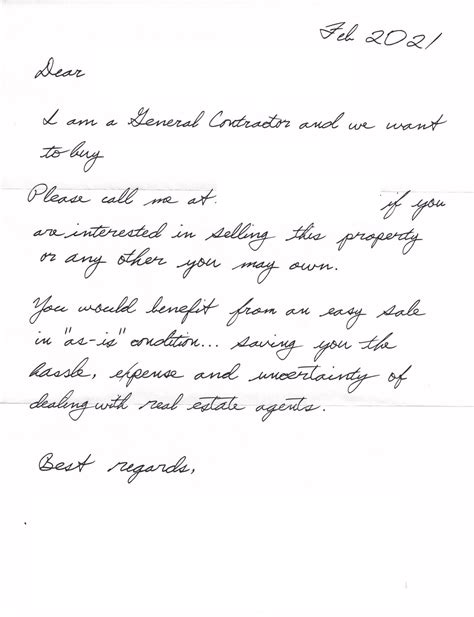 Feb 2021
Dear
I am a General Contractor and we want
to buy
Please call me at. if you
are interested in selling this property
or any other you may own.
You would benefit from an easy sale
in "as-is" condition... saving you the
hassle, expense and uncertainty of
dealing with real estate agents.
Best regards,